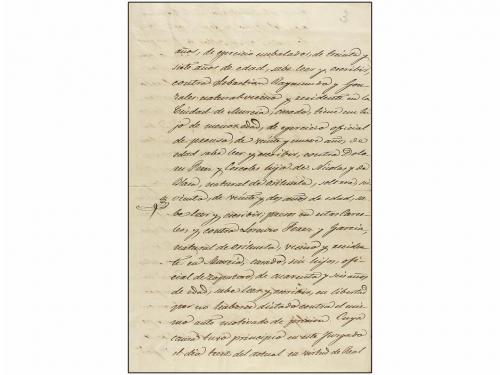 años, de ejercicio embalador, de treinta y
siete años de edad, sabe leer y escribir,
contra Sebastian Raymundo y Gon
zales natural vecino y residente en la
Ciudad de Murcia, casado, tiene un hi
jo de menor edad, de ejercicio oficial
de prensa, de veinte y nueve años, de
edad sabe leer y escribir, contra Dolo
res Perez y Corcoles hija de Nicolas y de
natural de Orihuela, soltera, sir
vienta, de veinte y dos años de edad, sa
be leer y escribir, presos en estas Carce
les, y contra Lorenzo Perez y Garcia,
natural de Orihuela, vecino y residen
te en Murcia, casado, sin hijos, ofi
cial de zapatero, de cuarenta y seis años
de edad, sabe leer y escribir, en libertad
por no haberse dictado contra el mis
mo auto motivado de prision. Cuya
causa tuvo principio en este Juzgado
el dia trece del actual en virtud de Real